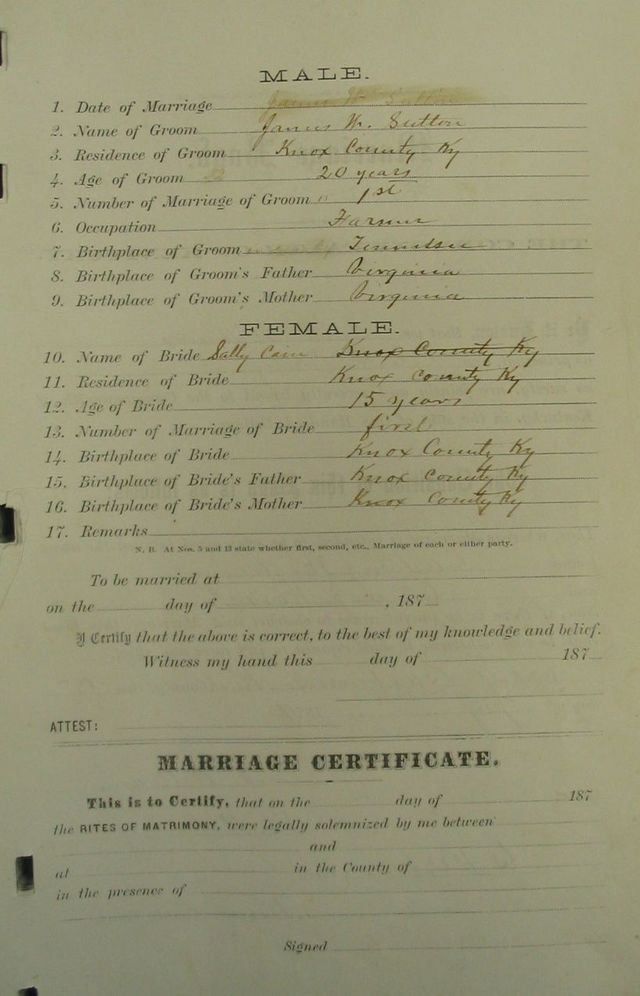 MALE.
1. Date of Marriage
2. Name of Groom James W. Sutton
3. Residence of Groom Knox County Ky
4. Age of Groom 20 years
5. Number of Marriage of Groom 1st
6. Occupation Farmer
7. Birthplace of Groom Tennessee
8. Birthplace of Groom's Father Virginia
9. Birthplace of Groom's Mother Virginia
FEMALE.
10. Name of Bride Sally Cain Knox County Ky
11. Residence of Bride Knox County Ky
12. Age of Bride 15 years
13. Number of Marriage of Bride first
14. Birthplace of Bride Knox County Ky
15. Birthplace of Bride's Father Knox County Ky
16. Birthplace of Bride's Mother Knox County Ky
17. Remarks
N. B. At Nos. 5 and 13 state whether first, second, etc., Marriage of each or either party.
To be married at
on the day of , 187
I Certify that the above is correct, to the best of my knowledge and belief.
Witness my hand this day of 187
ATTEST:
MARRIAGE CERTIFICATE.
This is to Certify, that on the day of 187
the RITES OF MATRIMONY, were legally solemnized by me between
and
at in the County of
in the presence of
Signed